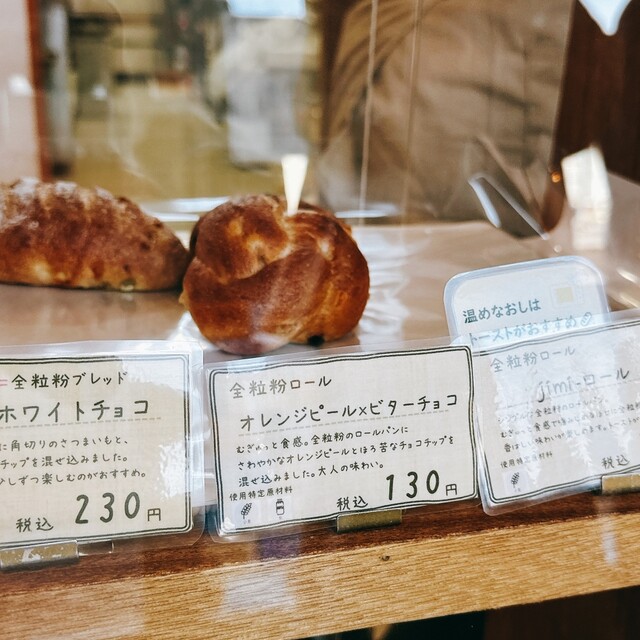 全粒粉ブレッド
ホワイトチョコ
に角切りのさつまいもと、
チップを混ぜ込みました。
少しずつ楽しむのがおすすめ。
税込 230円
全粒粉ロール
オレンジピール×ビターチョコ
むぎゅっと食感。全粒粉のロールパンに
さわやかなオレンジピールとほろ苦なチョコチップを
混ぜ込みました。大人の味わい。
使用特定原材料
税込 130円
温めなおしは
トーストがおすすめ
全粒粉ロール
jimi-ロール
使用特定原材料
税込